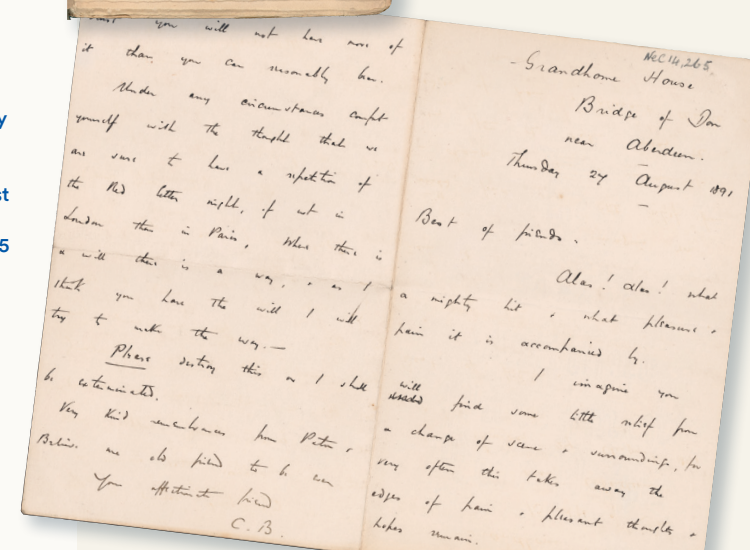 you will not have more of
it than you can reasonably bear.
Under any circumstances comfort
yourself with the thought that we
are sure to have a repetition of
the Red letter night, if not in
London then in Paris, where there is
a will there is a way, & as I
think you have the will I will
try to make the way.—
Please destroy this or I shall
be exterminated.
Very kind remembrances from Peter &
Believe me old friend to be ever
Your affectionate friend
C. B.
NeC 14,265
Grandhome House
Bridge of Don
near Aberdeen.
Thursday 27 August 1891
Best of friends.
Alas! alas! what
a mighty hit & what pleasure &
pain it is accompanied by.
I imagine you
will
find some little relief from
a change of scene & surroundings, for
very often this takes away the
edges of pain & pleasant thoughts &
hopes remain.
y
st
5